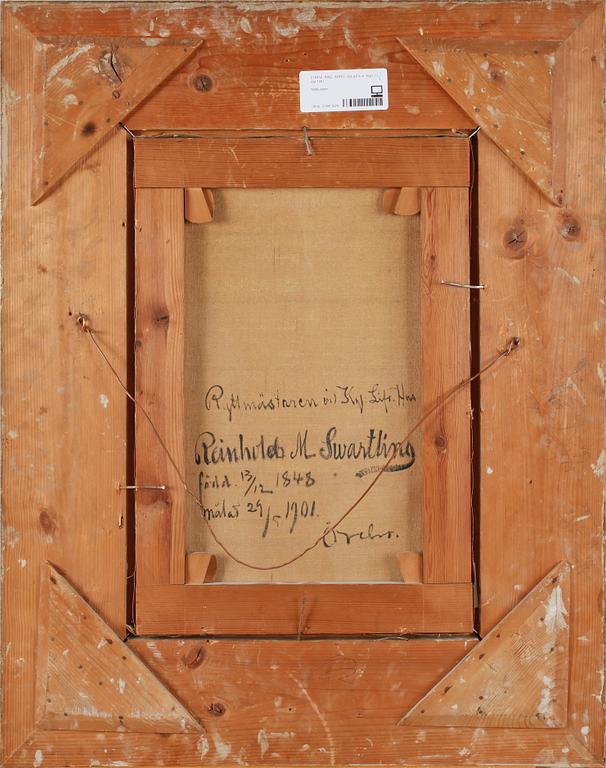 Ryttmästaren vid Kgl. Lifr. Hus
Reinhold M Swartling
född. 13/12 1848
målat 29/5 1901.
Örebro.